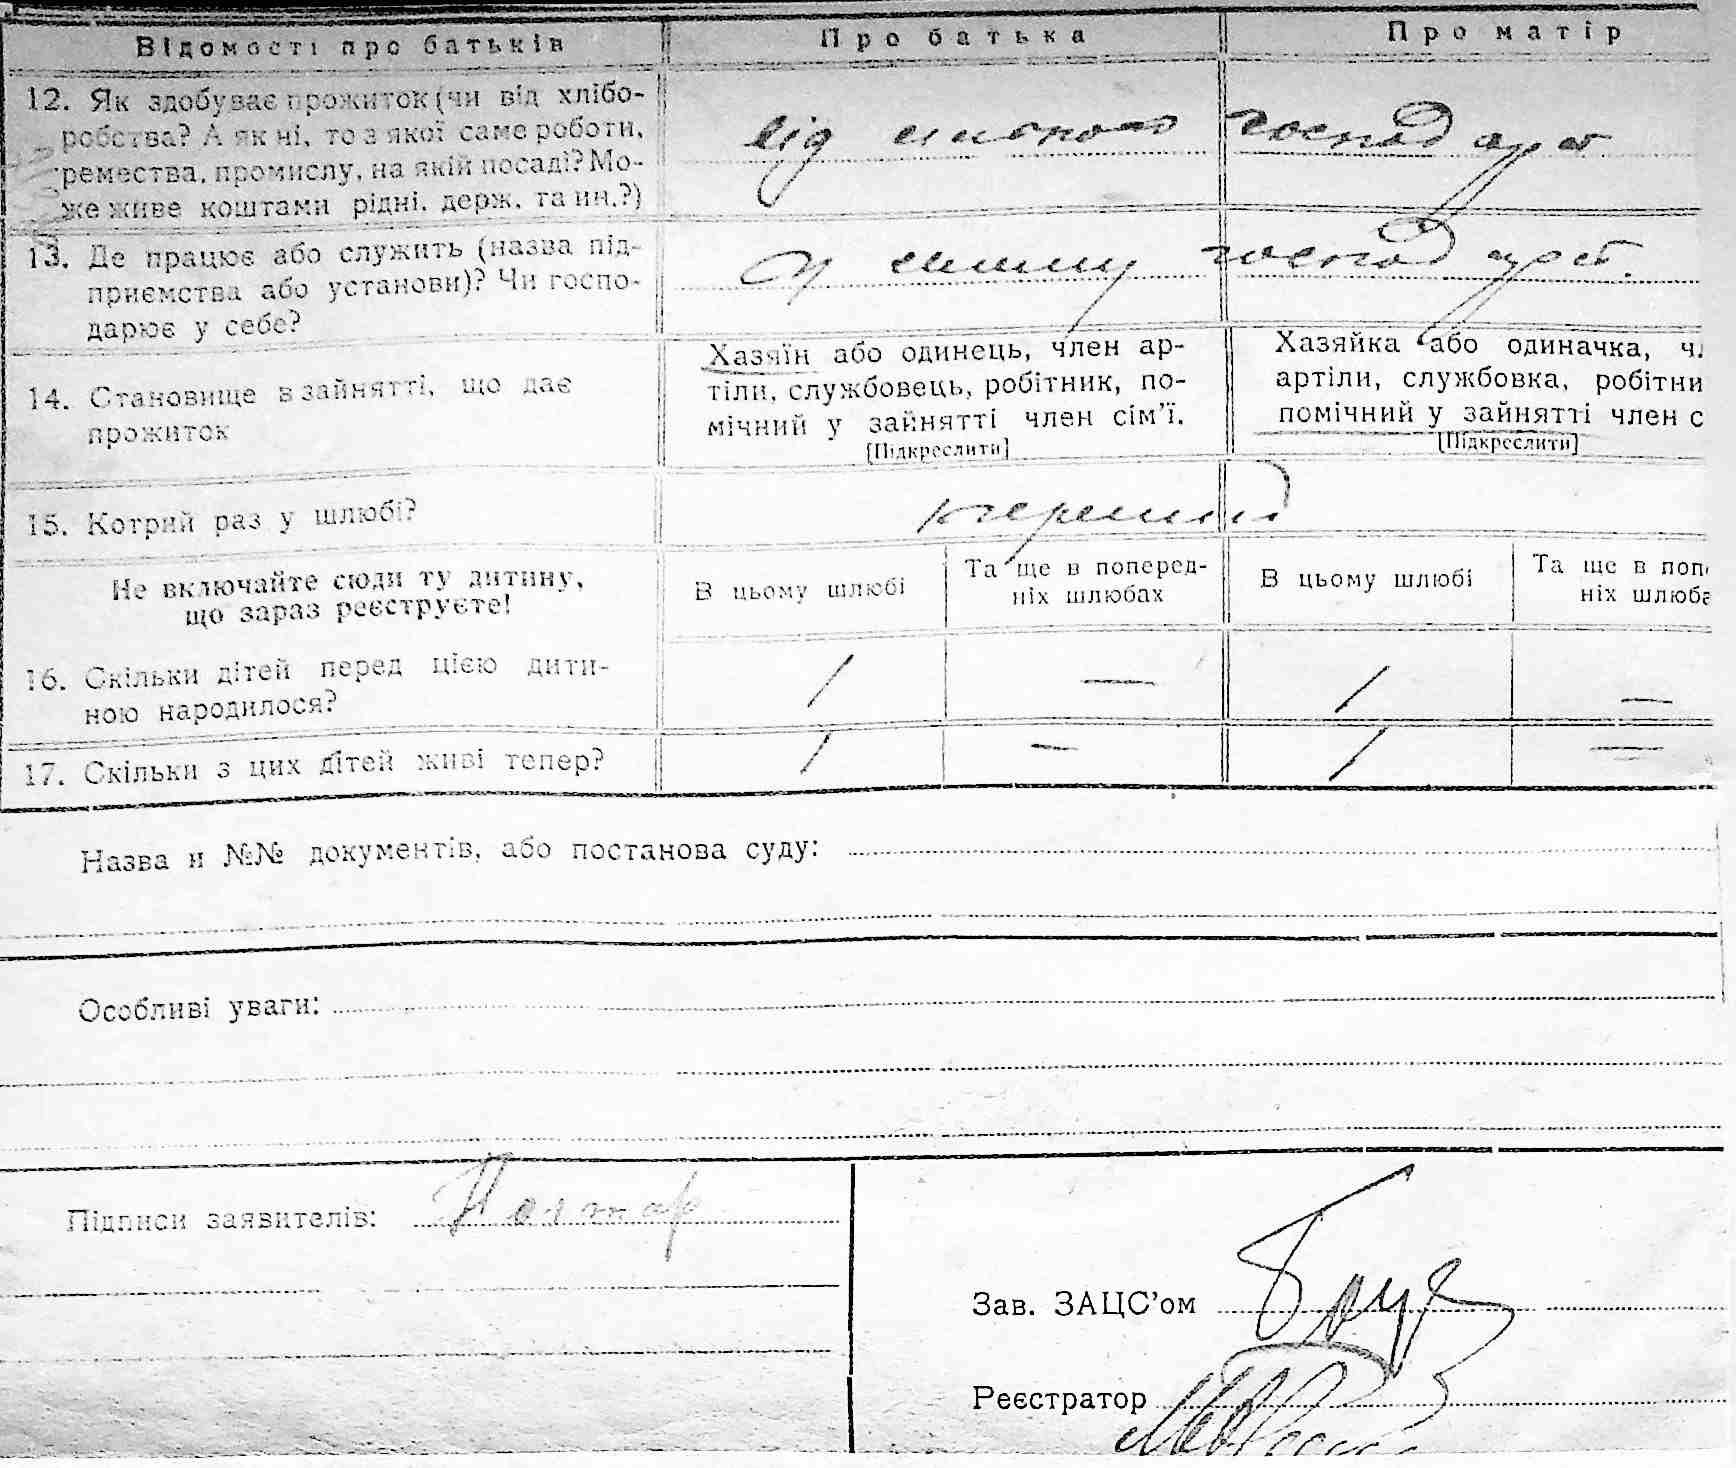 Відомості про батьків Про батька Про матір
12. Як здобуває прожиток (чи від хлібо-
робства? А як ні, то з якої саме роботи,
ремества, промислу, на якій посаді? Мо-
же живе коштами рідні, держ. та ин.?)
від господар
13. Де працює або служить (назва під-
приємства або установи)? Чи госпо-
дарює у себе?
У господар.
14. Становище в зайнятті, що дає
прожиток
Хазяїн або одинець, член ар-
тіли, службовець, робітник, по-
мічний у зайнятті член сім'ї.
[Підкреслити]
Хазяйка або одиначка, чл
артіли, службовка, робітни
помічний у зайнятті член с
[Підкреслити]
15. Котрий раз у шлюбі?
перший
Не включайте сюди ту дитину,
що зараз реєструєте!
В цьому шлюбі
Та ще в поперед-
ніх шлюбах
В цьому шлюбі
Та ще в попе
ніх шлюба
16. Скільки дітей перед цією дити-
ною народилося?
1 — 1 —
17. Скільки з цих дітей живі тепер?
1 — 1 —
Назва и №№ документів, або постанова суду:
Особливі уваги:
Підписи заявителів:
Зав. ЗАЦС'ом
Реєстратор